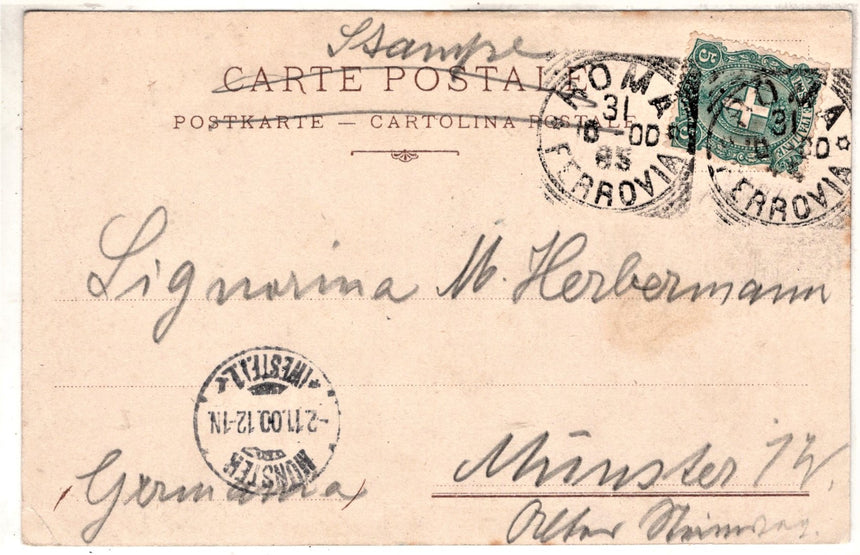 Stampe
CARTE POSTALE
POSTKARTE — CARTOLINA POSTALE
ROMA
31
10-00
8S
FERROVIA
5
ROMA
31
10-00
FERROVIA
Signorina M. Herbermann
MÜNSTER
-2.11.00.12-1N.
(WESTF.) 1.
Germania
Münster i/W.
Alter Steinweg.